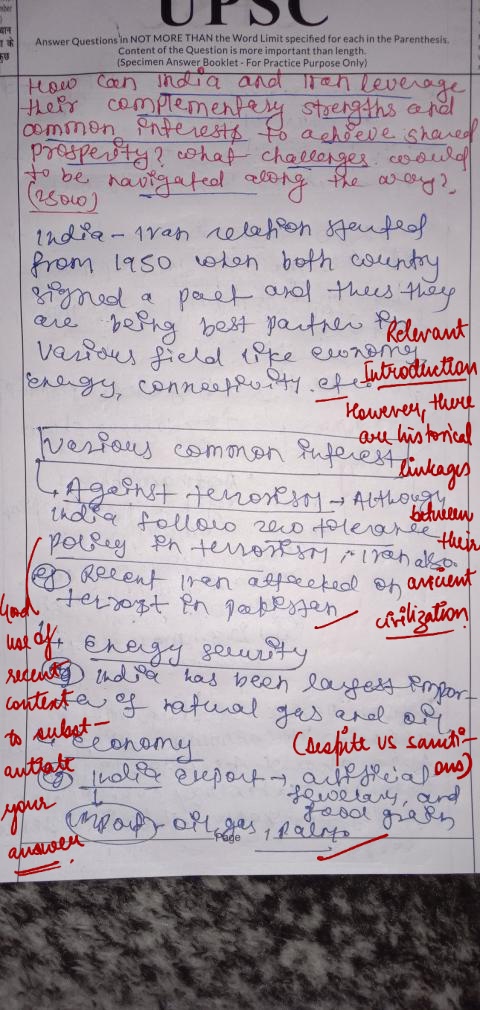 UPSC
Answer Questions in NOT MORE THAN the Word Limit specified for each in the Parenthesis.
Content of the Question is more important than length.
(Specimen Answer Booklet - For Practice Purpose Only)
How can India and Iran leverage
their complementary strengths and
common interests to achieve shared
prosperity? what challenges would
to be navigated along the way?
(250w)
India - Iran relation started
from 1950 when both country
signed a pact and thus they
are being best partner in
various field like economy,
energy, connectivity. etc
Relevant
Introduction
However, there
are historical
linkages
between
their
ancient
civilization.
Various common interest
Against terrorism → Although
India follow zero tolerance
policy in terrorism, Iran also.
eg) Recent Iran attacked on
terrorist in pakistan
Good
use of
recent
context
to subst-
antiate
your
answer
→ Energy security
eg) India has been largest impor-
ter of natural gas and oil
(Despite US sancti-
ons)
economy
eg) India export → artificial
jewellary, and
food grain
Import - oil, gas,
Page